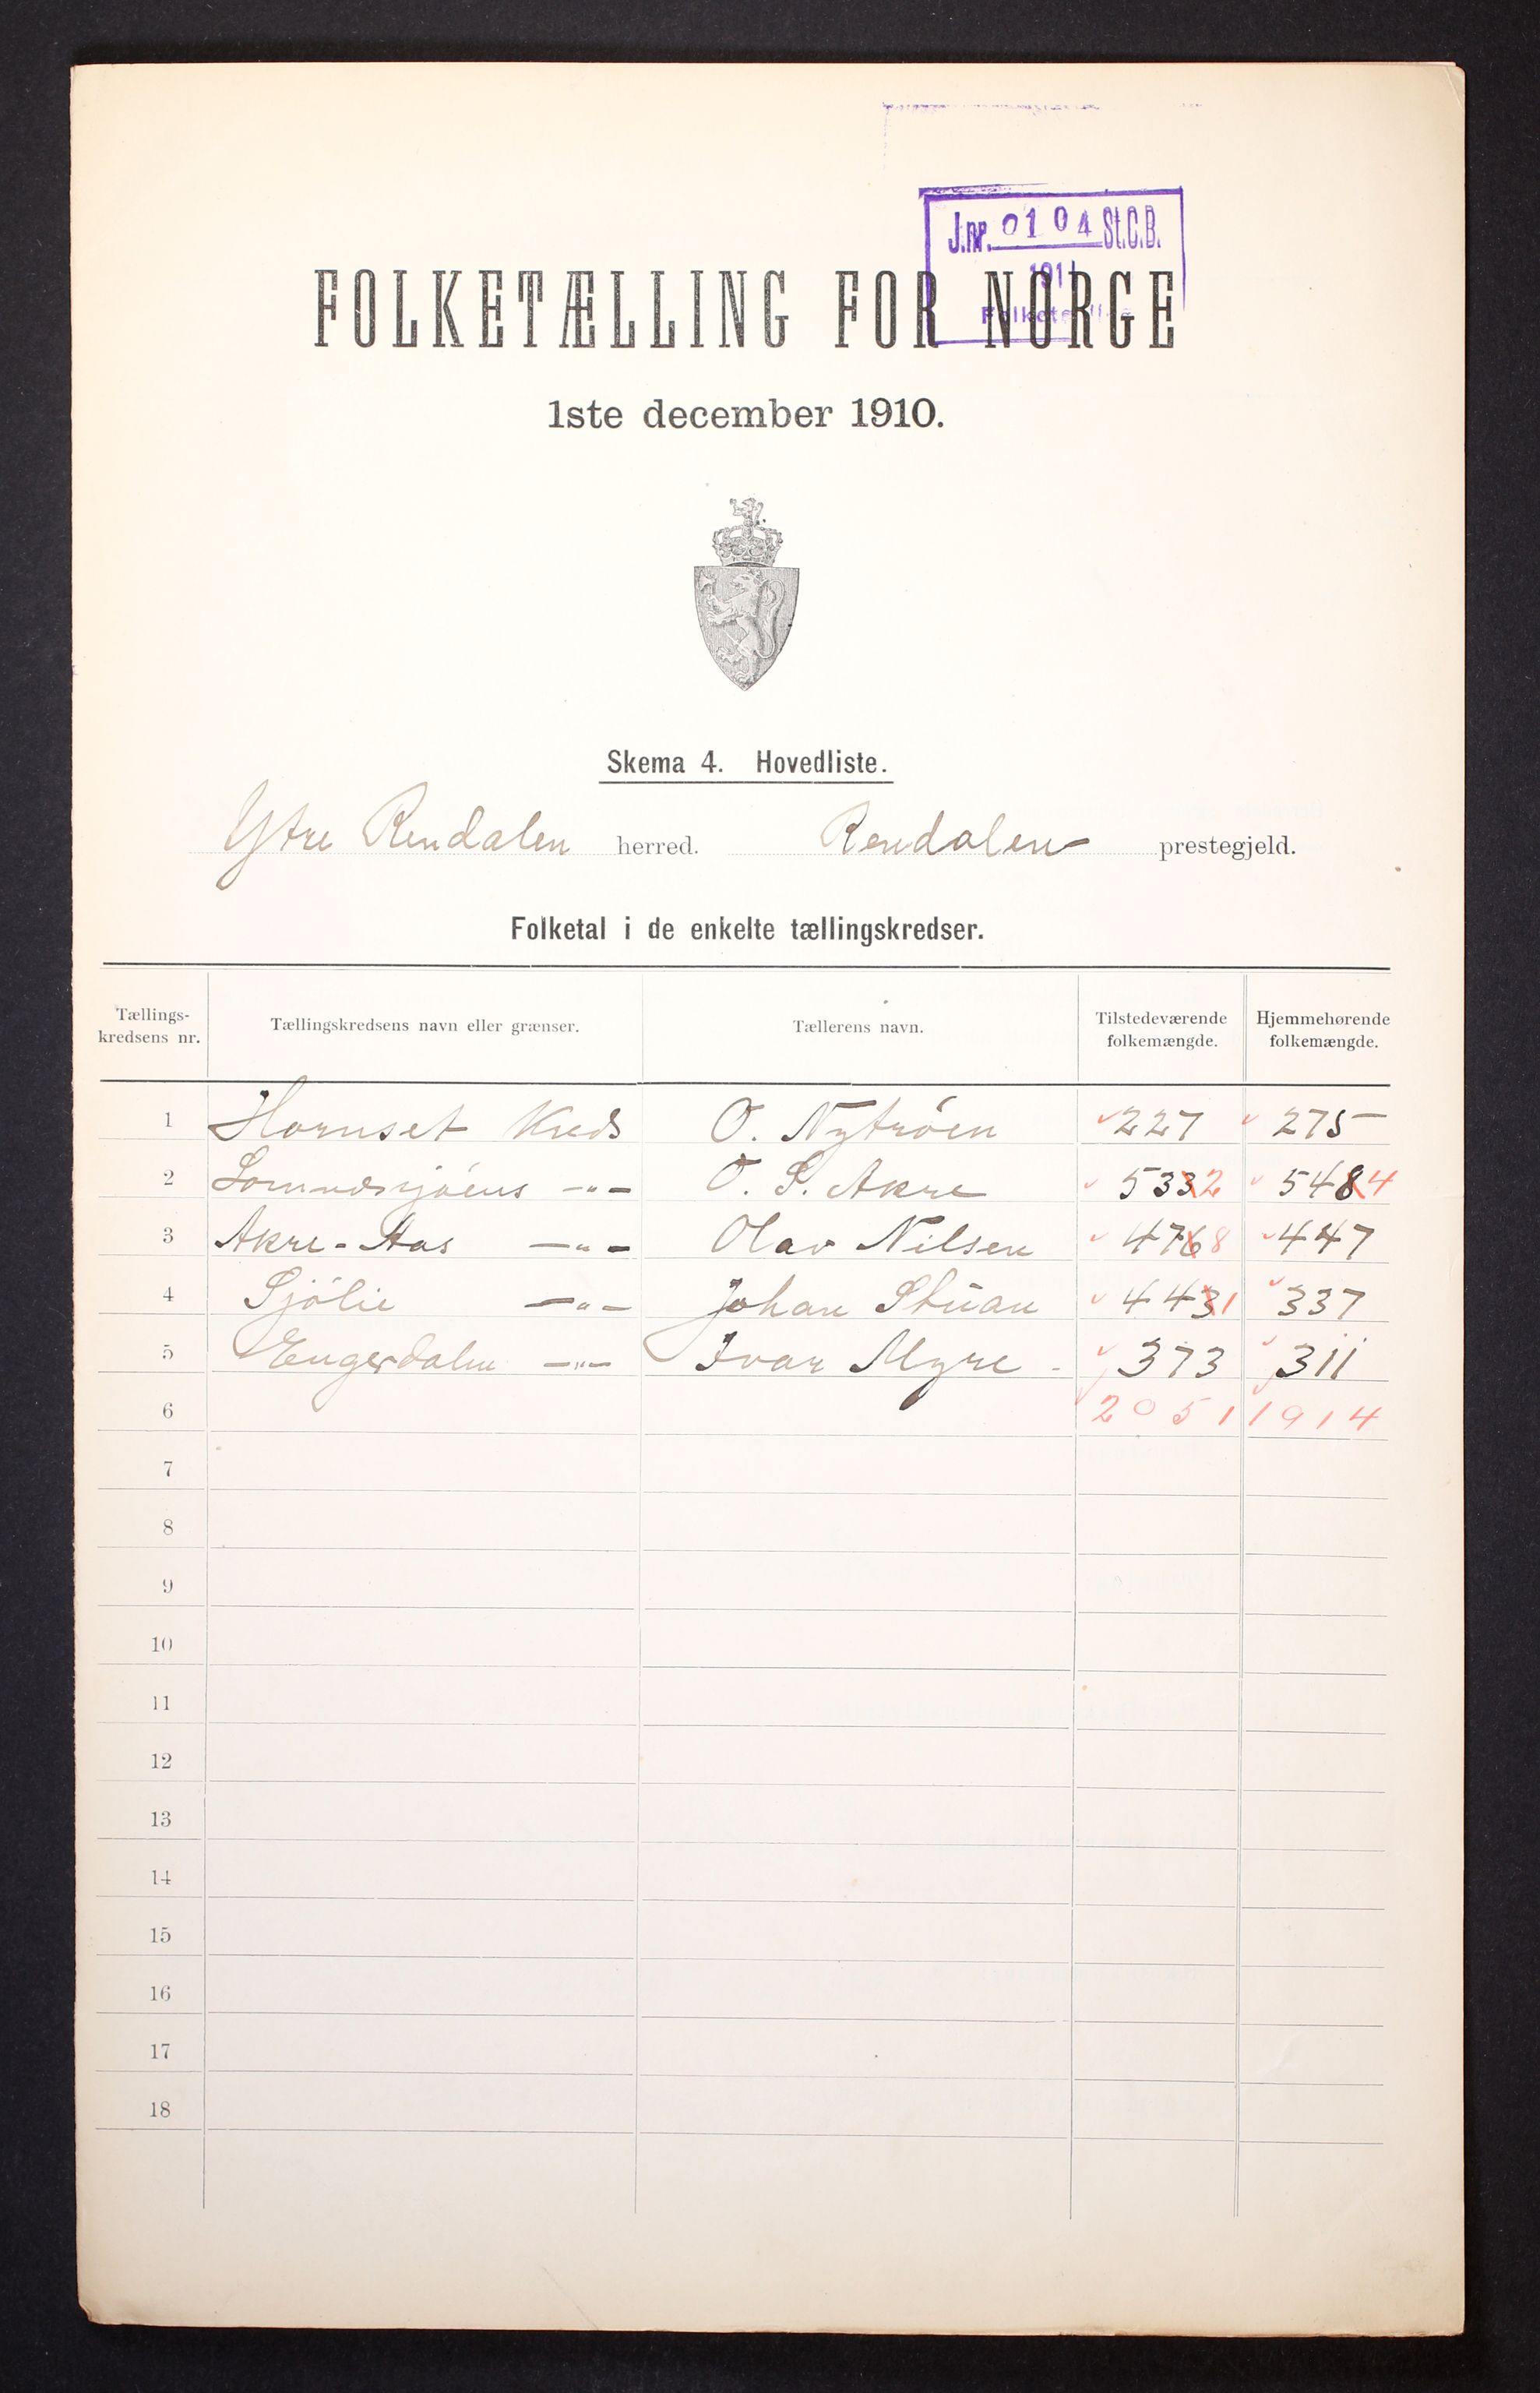 J.nr. 0104 St.C.B.
1911
Folketelling
FOLKETÆLLING FOR NORGE
1ste december 1910.
Skema 4. Hovedliste.
Ytre Rendalen herred. Rendalen prestegjeld.
Folketal i de enkelte tællingskredser.
Tællings-kredsens nr. Tællingskredsens navn eller grænser. Tællerens navn. Tilstedeværende folkemængde. Hjemmehørende folkemængde.
1 Hornset Kreds O. Nytröen 227 275
2 Lomnessjöens -"- O. S. Akre 5332 5484
3 Akre-Aas -"- Olav Nilsen 4768 447
4 Sjölie -"- Johan Stuan 4431 337
5 Engerdalen -"- Ivar Myre - 373 311
6 2051 1914
7
8
9
10
11
12
13
14
15
16
17
18